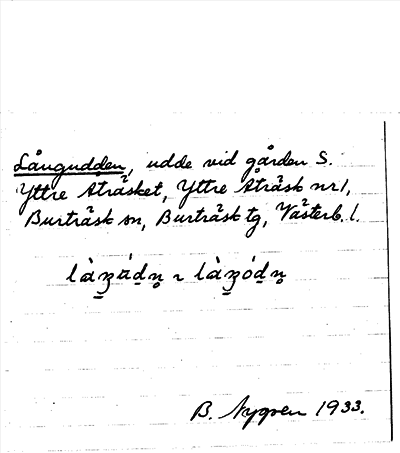 Långudden, udde vid gården S.
Yttre Åträsket, Yttre Åträsk nr 1,
Burträsk sn, Burträsk tg, Västerb. l.
B. Nygren 1933.